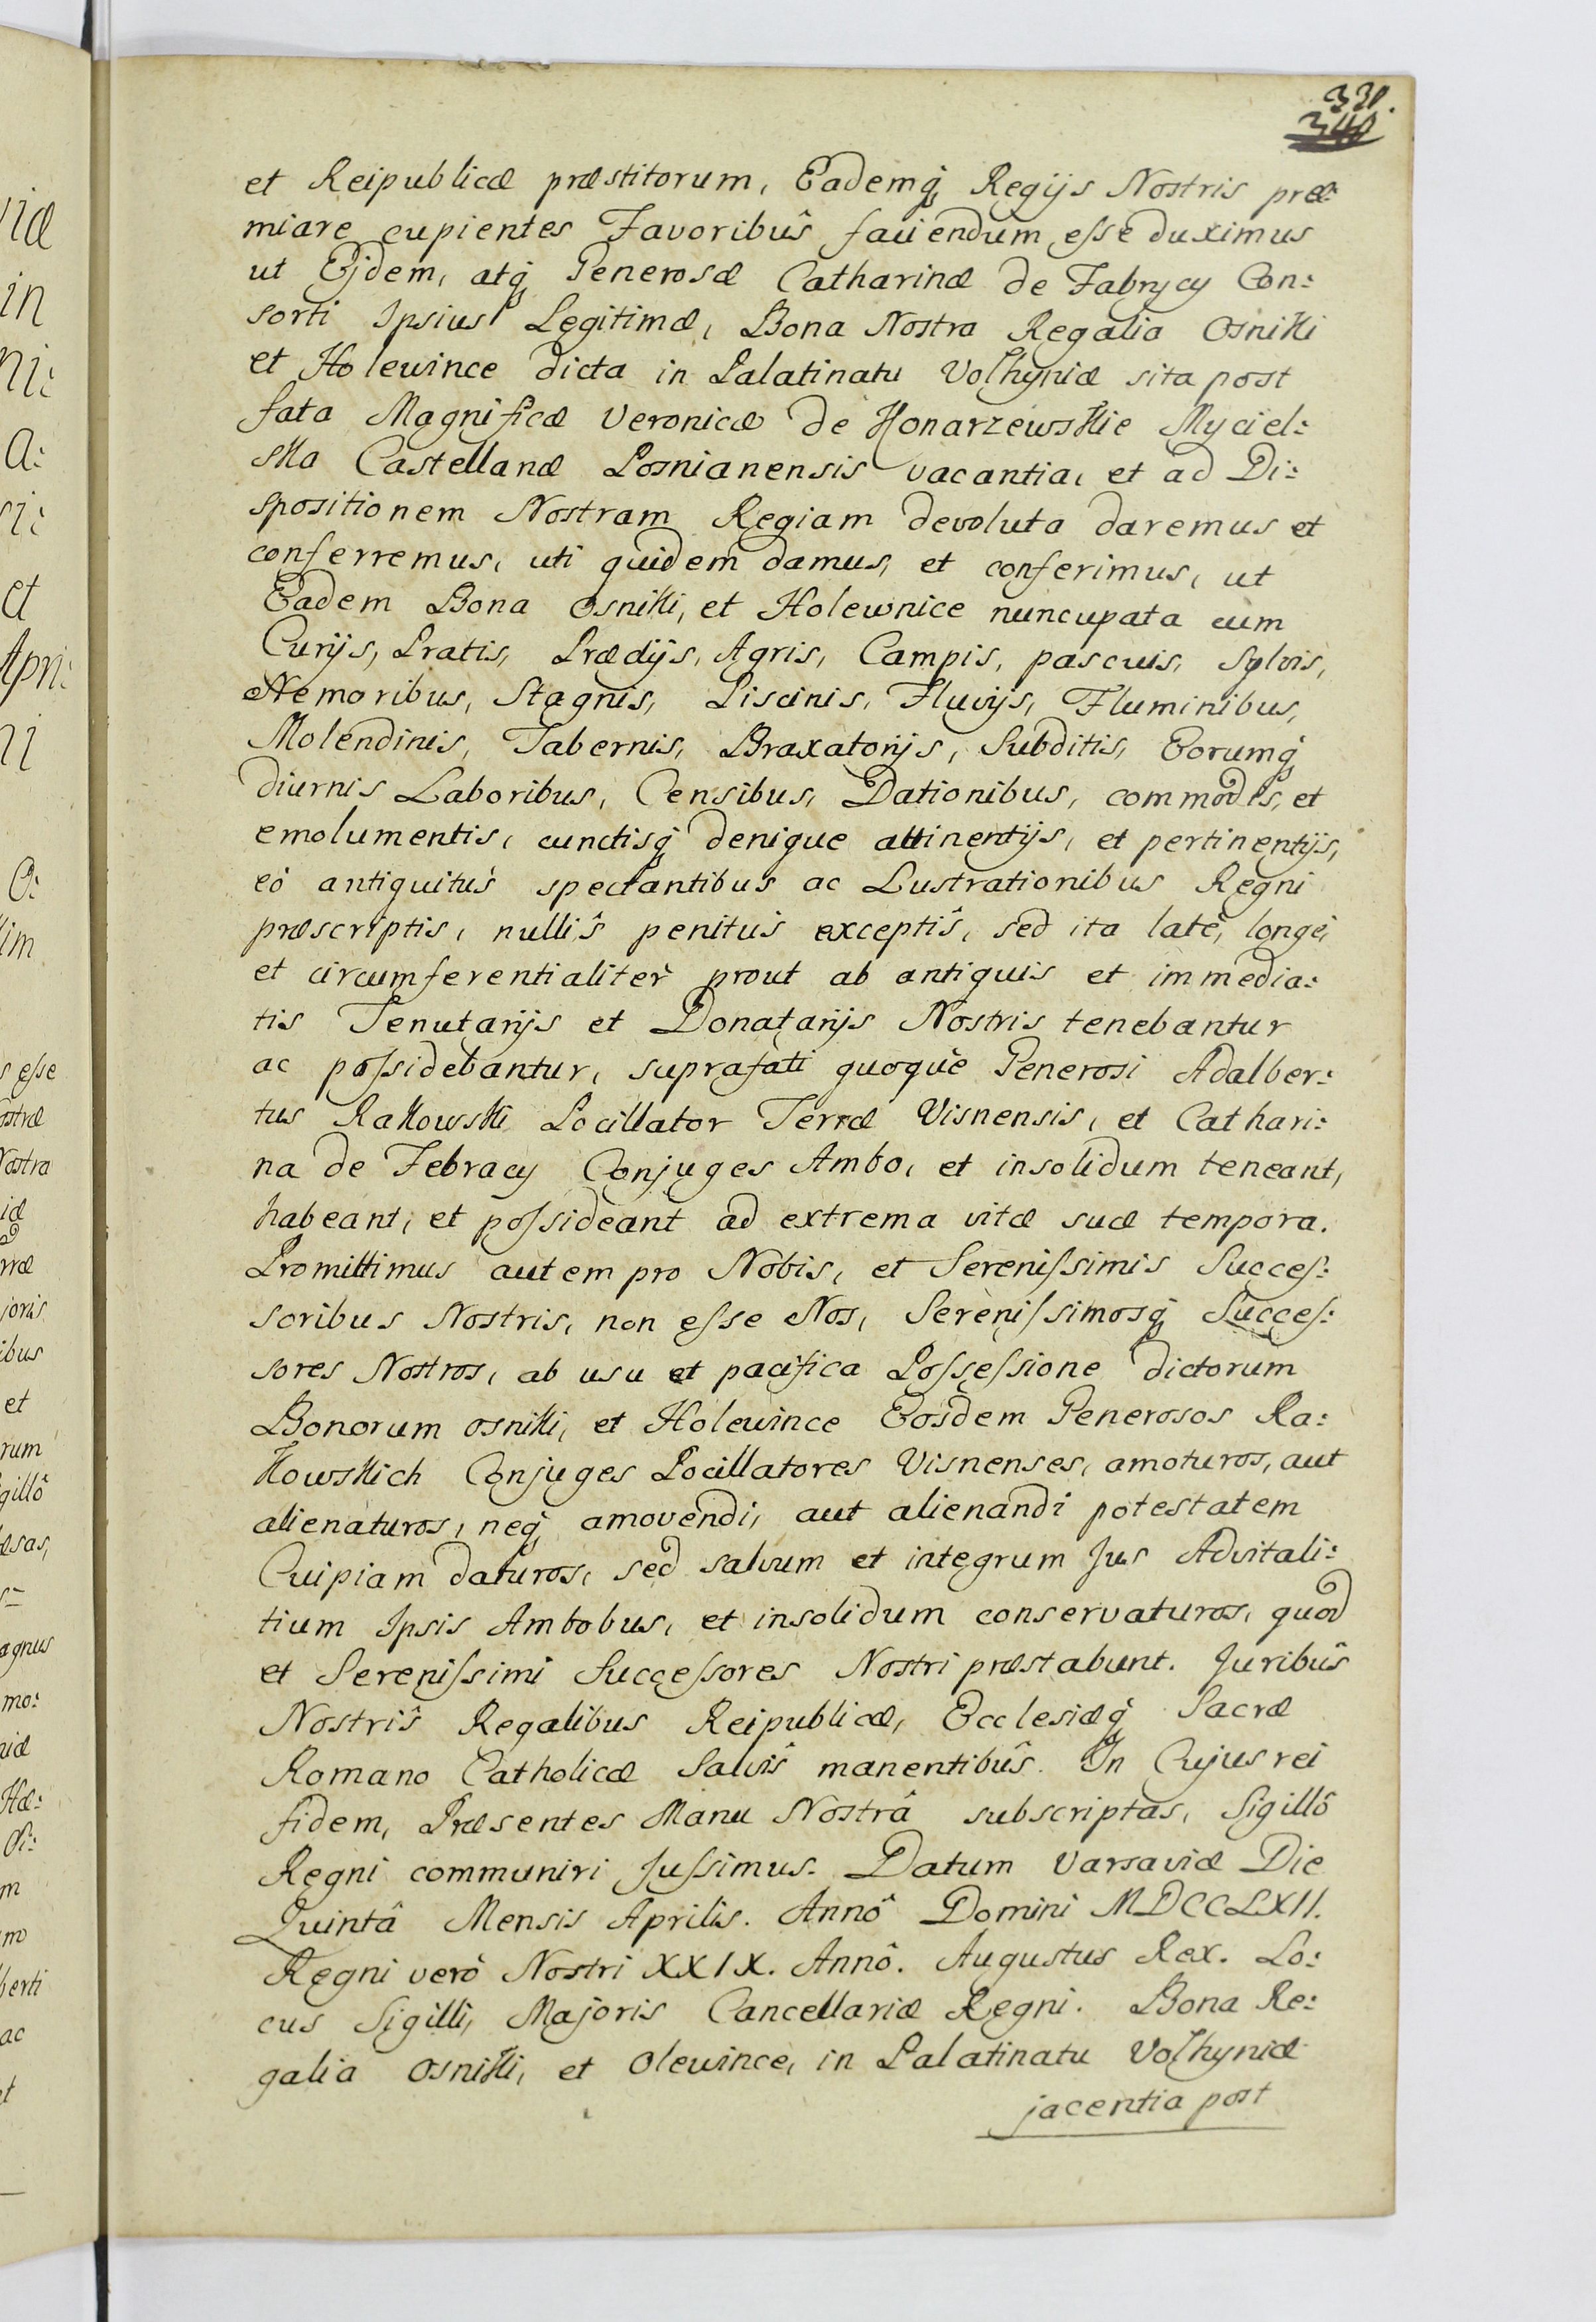 331.
340
et Reipublicæ præstitorum, Eademq́ Regijs Nostris præ:
miare cupientes Favoribuŝ faciendum esse duximus
ut Ejdem, atq́ Generosæ Catharinæ de Fabrycy Con:
sorti Ipsius Legitimæ, Bona Nostra Regalia Osniki
et Holewince dicta in Palatinatu Volhyniæ sita post
fata Magnificæ Veronicæ de Konarzewskie Myciel:
ska Castellanæ Posnianensis vacantia, et ad Di:
spositionem Nostram Regiam devoluta daremus et
conferremus, uti quidem damus, et conferimus, ut
Eadem Bona Osniki, et Holewnice nuncupata cum
Curijs, Pratis, Prædijs, Agris, Campis, pascuis, Sylvis,
Nemoribus, Stagnis, Piscinis, Fluvijs, Fluminibus,
Molendinis, Tabernis, Braxatorijs, Subditis, Eorumq́
diurnis Laboribus, Censibus, Dationibus, commodis, et
emolumentis, cunctisq́ denique attinentijs, et pertinentijs,
eò antiquitùs spectantibus ac Lustrationibus Regni
præscriptis, nulliŝ penitùs exceptiŝ, sed ita latè, longè,
et circumferentialitèr prout ab antiquis et immedia:
tis Tenutarijs et Donatarijs Nostris tenebantur
ac possidebantur, suprafati quoquè Generosi Adalber:
tus Rakowski Pocillator Terræ Visnensis, et Cathari:
na de Febracy Conjuges Ambo, et insolidum teneant,
habeant, et possideant ad extrema vitæ suæ tempora.
Promittimus autem pro Nobis, et Serenissimis Succes:
soribus Nostris, non esse Nos, Serenissimosq́ Succes:
sores Nostros, ab usu et pacifica Possessione dictorum
Bonorum osniki, et Holewince Eosdem Generosos Ra:
kowskich Conjuges Pocillatores Visnenses, amoturos, aut
alienaturos, neq́ amovendi, aut alienandi potestatem
Cuipiam daturos, sed salvum et integrum Jus Advitali:
tium Ipsis Ambobus, et insolidum conservaturos, quod
et Serenissimi Successores Nostri præstabunt. Juribuŝ
Nostriŝ Regalibus Reipublicæ, Ecclesiæq́ Sacræ
Romano Catholicæ Salviŝ manentibuŝ. In Cujus rei
fidem, Præsentes Manu Nostrâ subscriptas, Sigillô
Regni communiri Jussimus. Datum Varsaviæ Die
Quintâ Mensis Aprilis. Annô Domini MDCCLXII.
Regni verò Nostri XXIX. Annô. Augustus Rex. Lo:
cus Sigilli, Majoris Cancellariæ Regni. Bona Re:
galia Osniki, et Olewince, in Palatinatu Volhyniæ
jacentia post